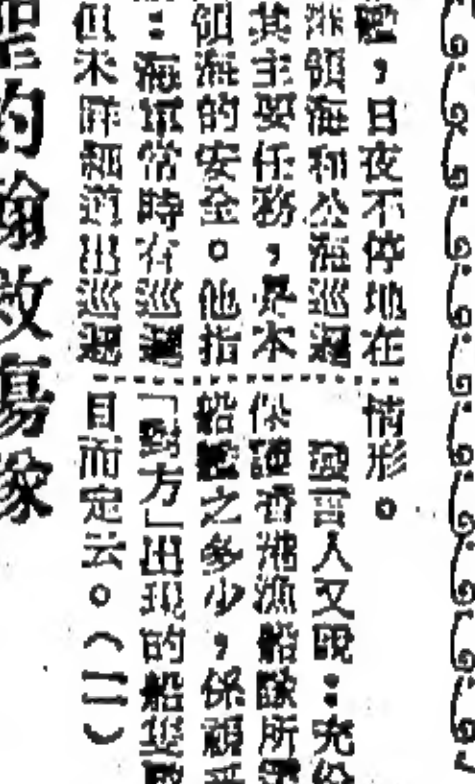 艦，日夜不停地在
港領海和公海巡邏
其主要任務，是本
領海的安全。他指
：海軍常時有巡邏
但未詳細道出巡邏
情形。
發言人又說：充份
保護香港漁船隊所需
船艦之多少，係視乎
「對方」出現的船隻數
目而定云。（二）
聖約翰救傷隊